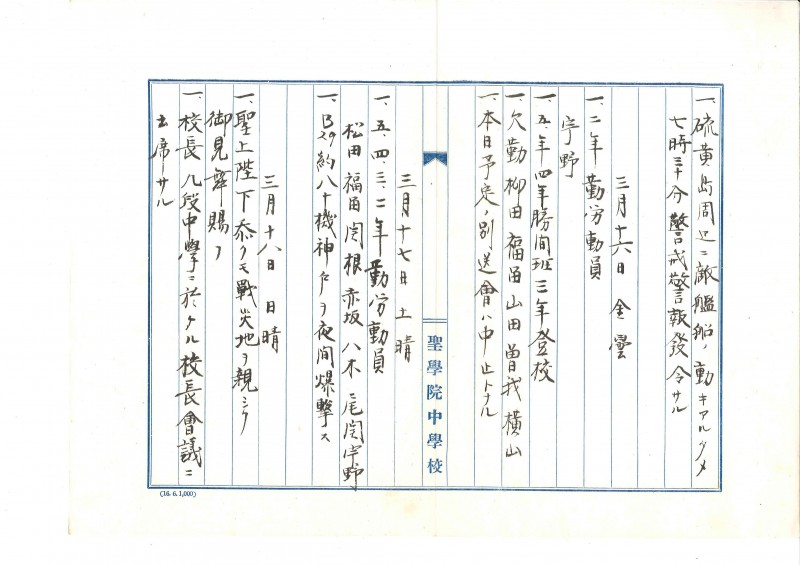 一、硫黄島周辺ニ敵艦船ノ動キアルタメ
七時三十分警戒警報發令サル
三月十六日 金 曇
一、二年 勤労動員
宇野
一、五年四年勝間班三年登校
一、欠勤 柳田 福田 山田 曽我 横山
一、本日予定ノ別送會ハ中止トナル
聖學院中學校
三月十七日 土 晴
一、五、四、三、二年勤労動員
松田 福田 関根 赤坂 八木 尾関 宇野
一、B29約八十機神戸ヲ夜間爆撃ス
三月十八日 日 晴
一、聖上陛下忝クモ戰災地ヲ親シク
御見舞賜フ
一、校長 九段中學ニ於ケル校長會議ニ
出席サル
(16. 6. 1,000)